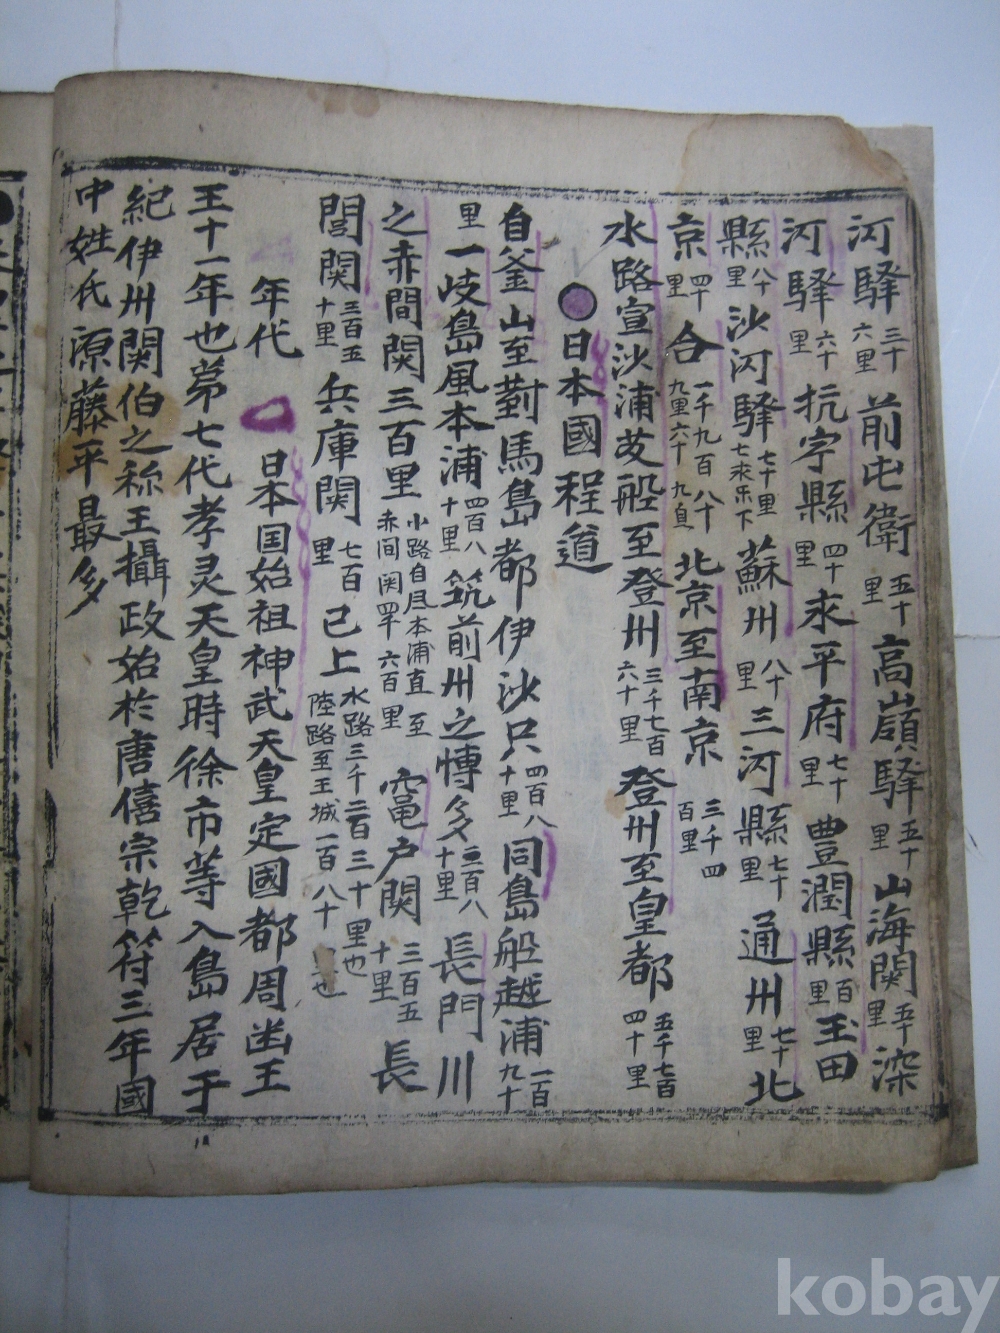 河驛三十六里前屯衛五十里高嶺驛五十里山海関五十里深
河驛六十里抚宁縣四十里永平府七十里豊潤縣百里玉田
縣八十里沙河驛七十里蘇州八十里三河縣七十里通州七十里北
京四十里合一千九百八十九里六十九息北京至南京三千四百里
水路宣沙浦發船至登州三千七百六十里登州至皇都五千七百四十里
日本國程道
自釜山至對馬島都伊沙只四百八十里同島船越浦一百九十
里一岐島風本浦四百八十里筑前州之慱多三百八十里長門川
之赤間関三百里小路自風本浦直至赤间関四十六百里竃户関三百五十里長
閏関三百五十里兵庫関七百里已上水路三千二百三十里也陸路至王城一百八十里也
年代 日本国始祖神武天皇定國都周幽王
王十一年也第七代孝灵天皇時徐市等入島居于
紀伊州関伯之称王攝政始於唐僖宗乾符三年國
中姓氏源藤平最多
kobay